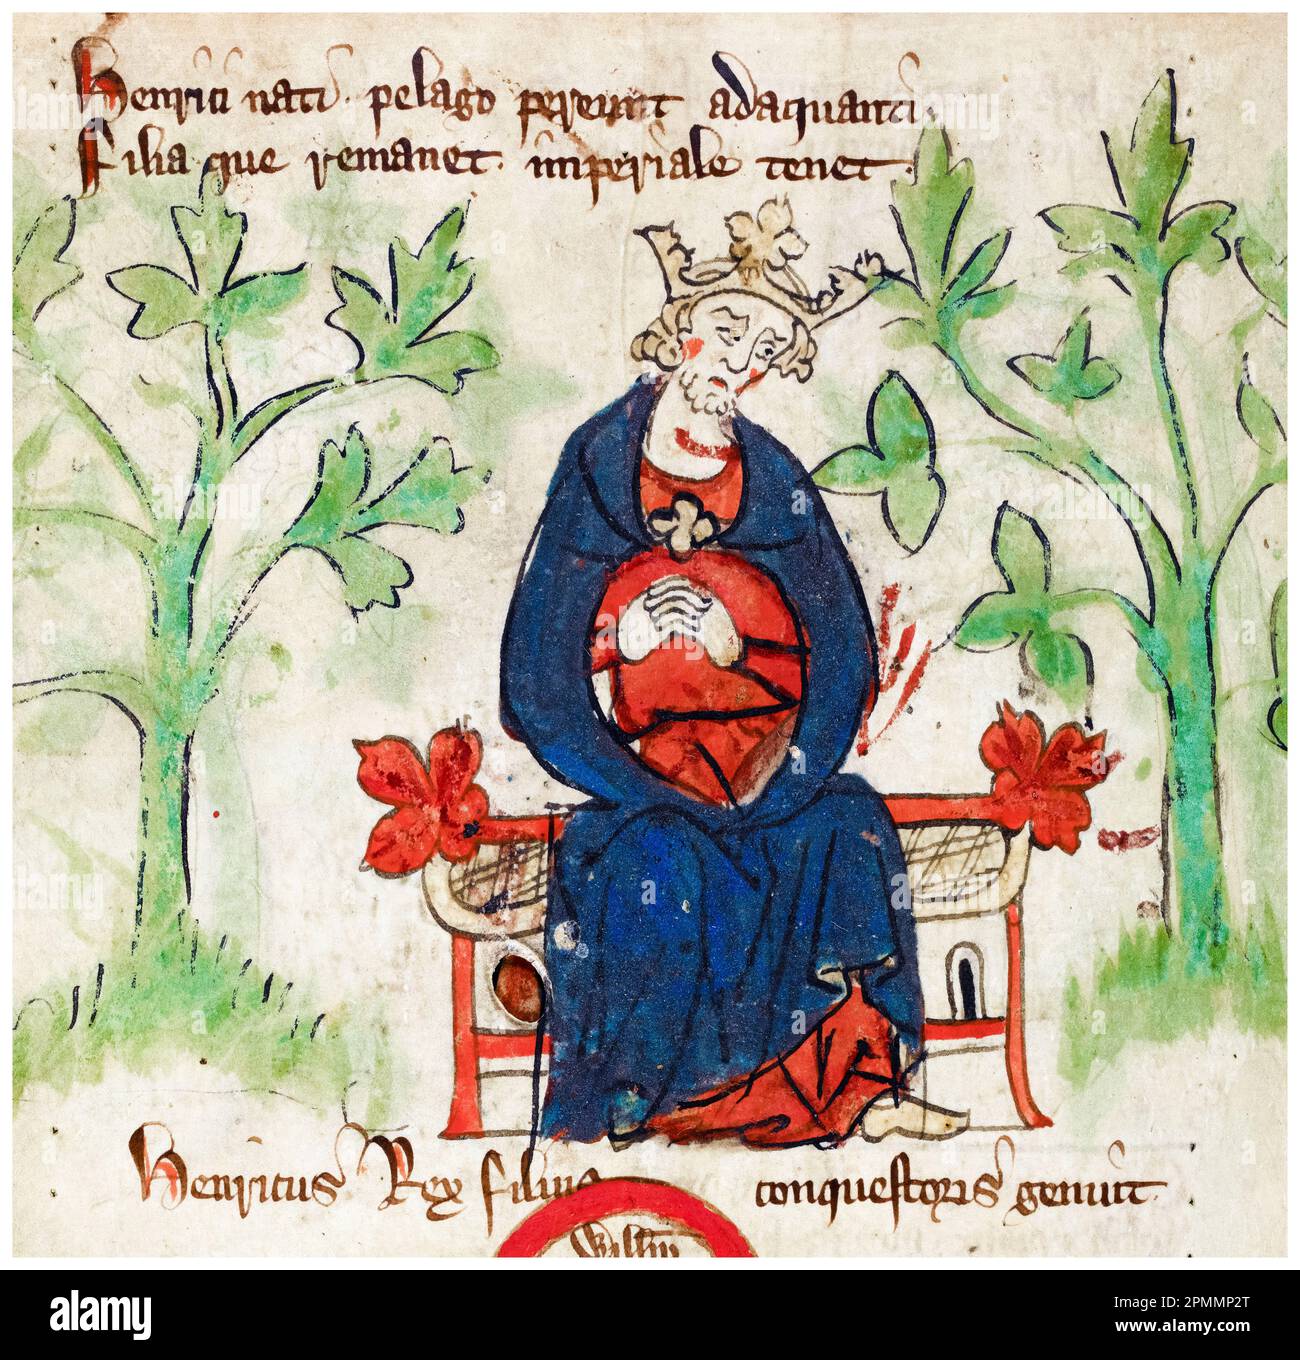 Henrici nati pelago pereunt adaquanti
Filia que remanet imperiale tenet
Henricus Rex filius conquestoris genuit
Willm
alamy
Image ID: 2PMMP2T
www.alamy.com